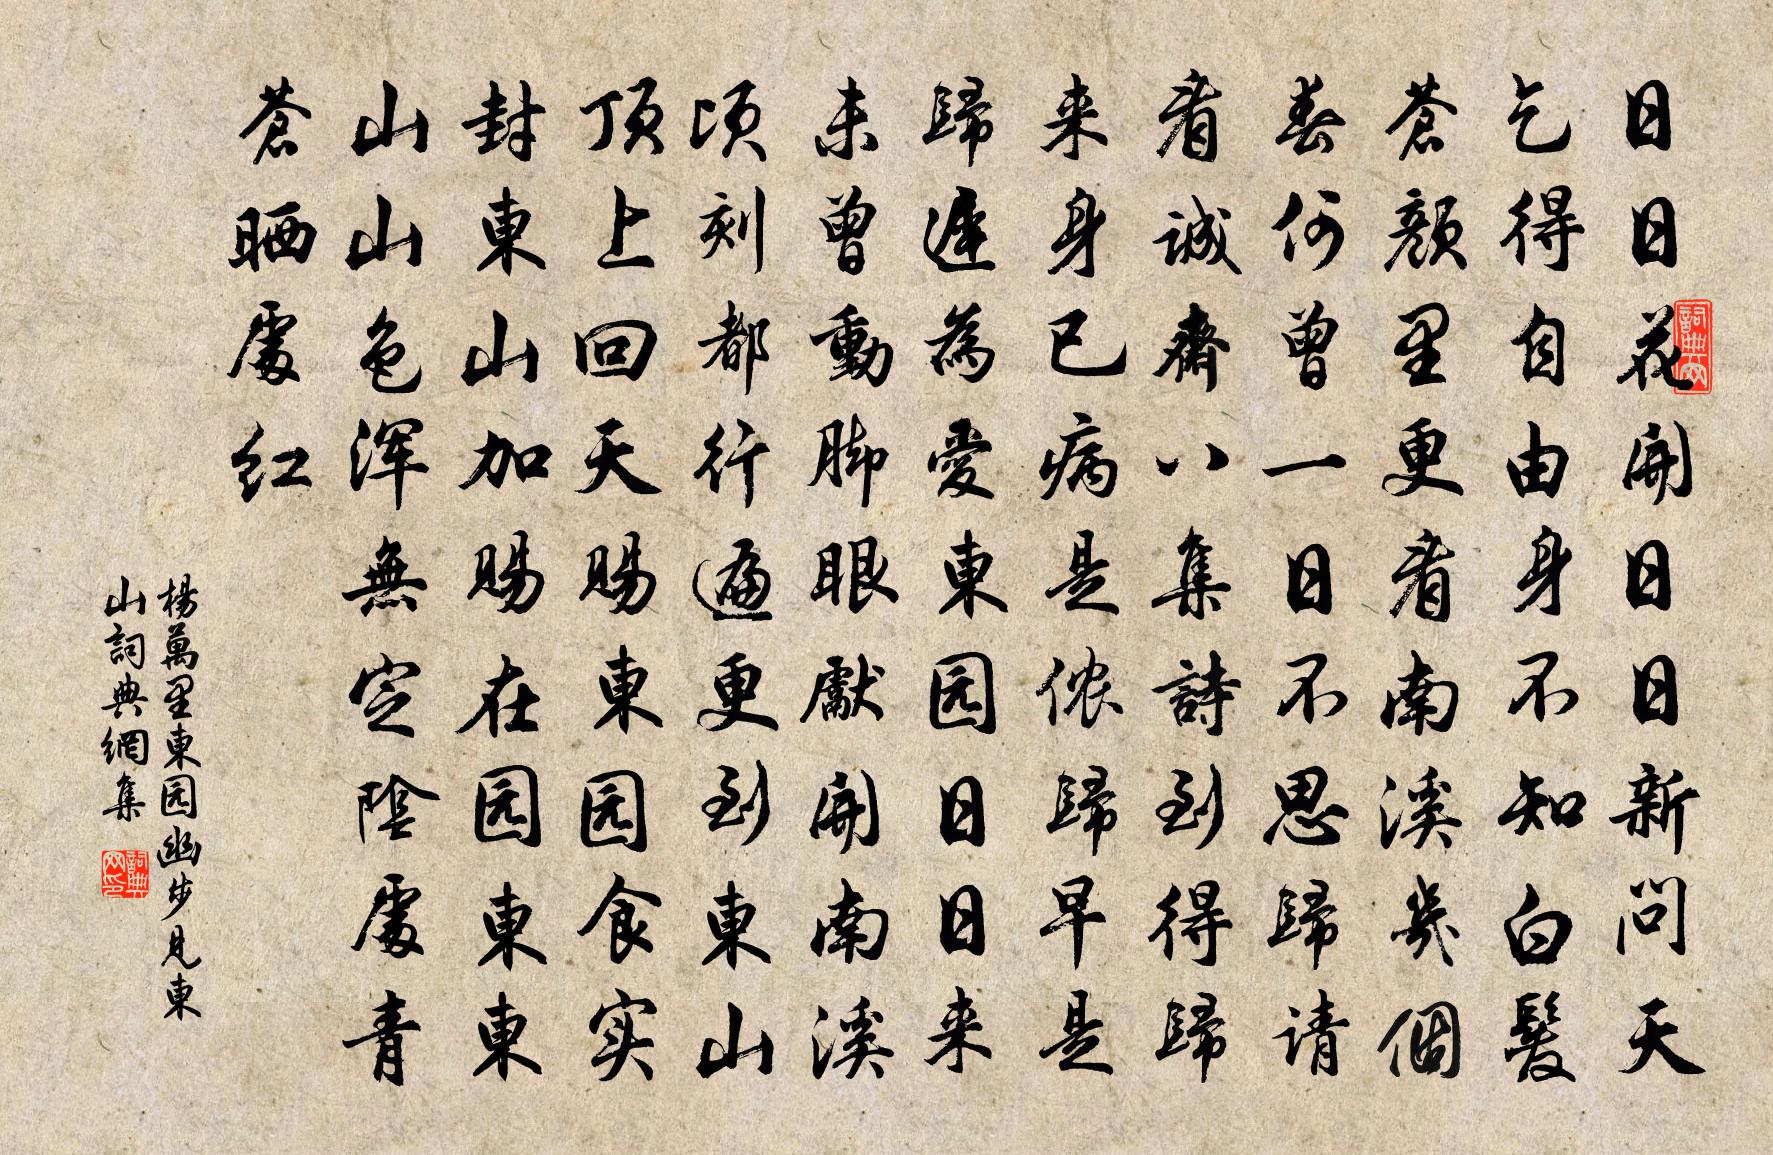 詞典网
日日花開日日新問天
乞得自由身不知白髮
蒼顏里更看南溪幾個
春何曾一日不思歸请
看誠齋八集詩到得歸
来身已病是侬歸早是
歸遲為愛東园日日来
未曾動脚眼獻開南溪
顷刻都行遍更到東山
顶上回天賜東园食实
封東山加賜在园東東
山山色浑無定陰處青
蒼晒處红
楊萬里東园幽步見東
山詞典網集
詞典网印